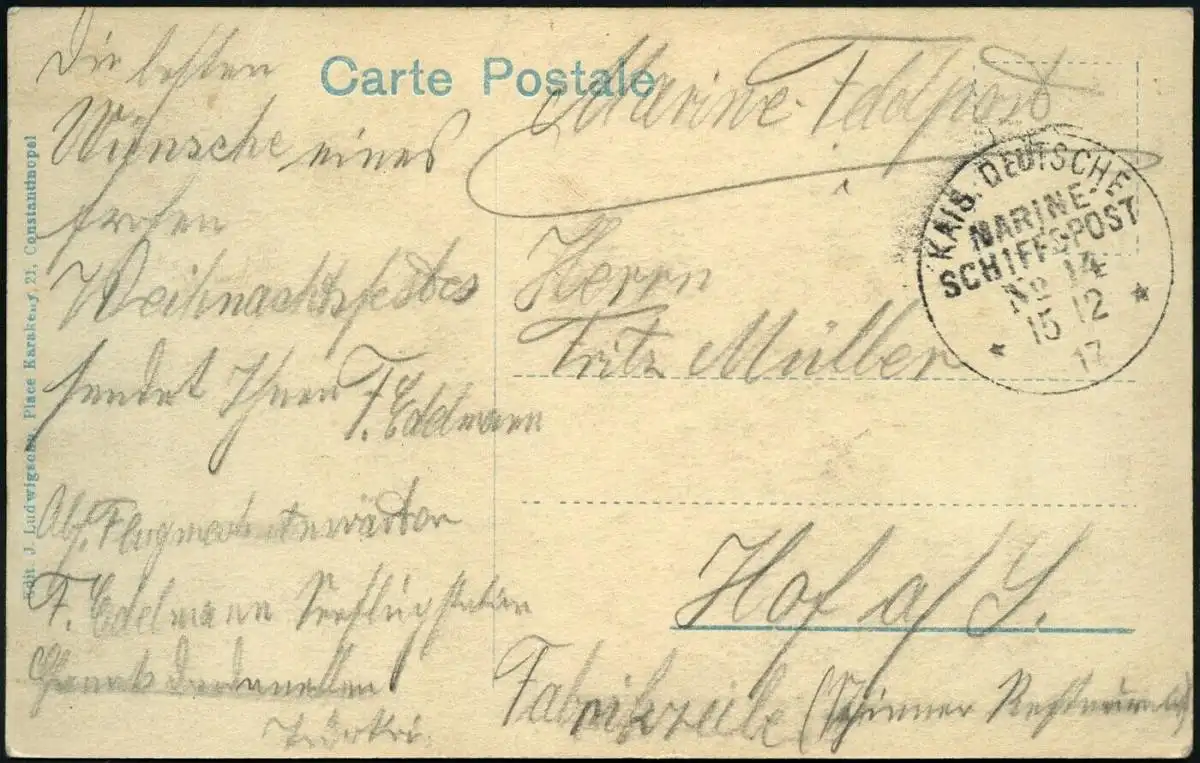 Carte Postale
Die besten
Wünsche eines
frohen
Weihnachtsfestes
sendet Ihnen
F. Edelmann
Abs. Flugmeisteranwärter
F. Edelmann Seeflugstation
Chanak Dardanellen
Türkei.
Marine-Feldpost
Herrn
Fritz Müller
Hof a/S.
Fabrikzeile (Restaurant)
KAIS. DEUTSCHE
MARINE-
SCHIFFSPOST
No 14
15 12
17
Edit. J. Ludwigsohn, Place Karakeuy, 21, Constantinopel